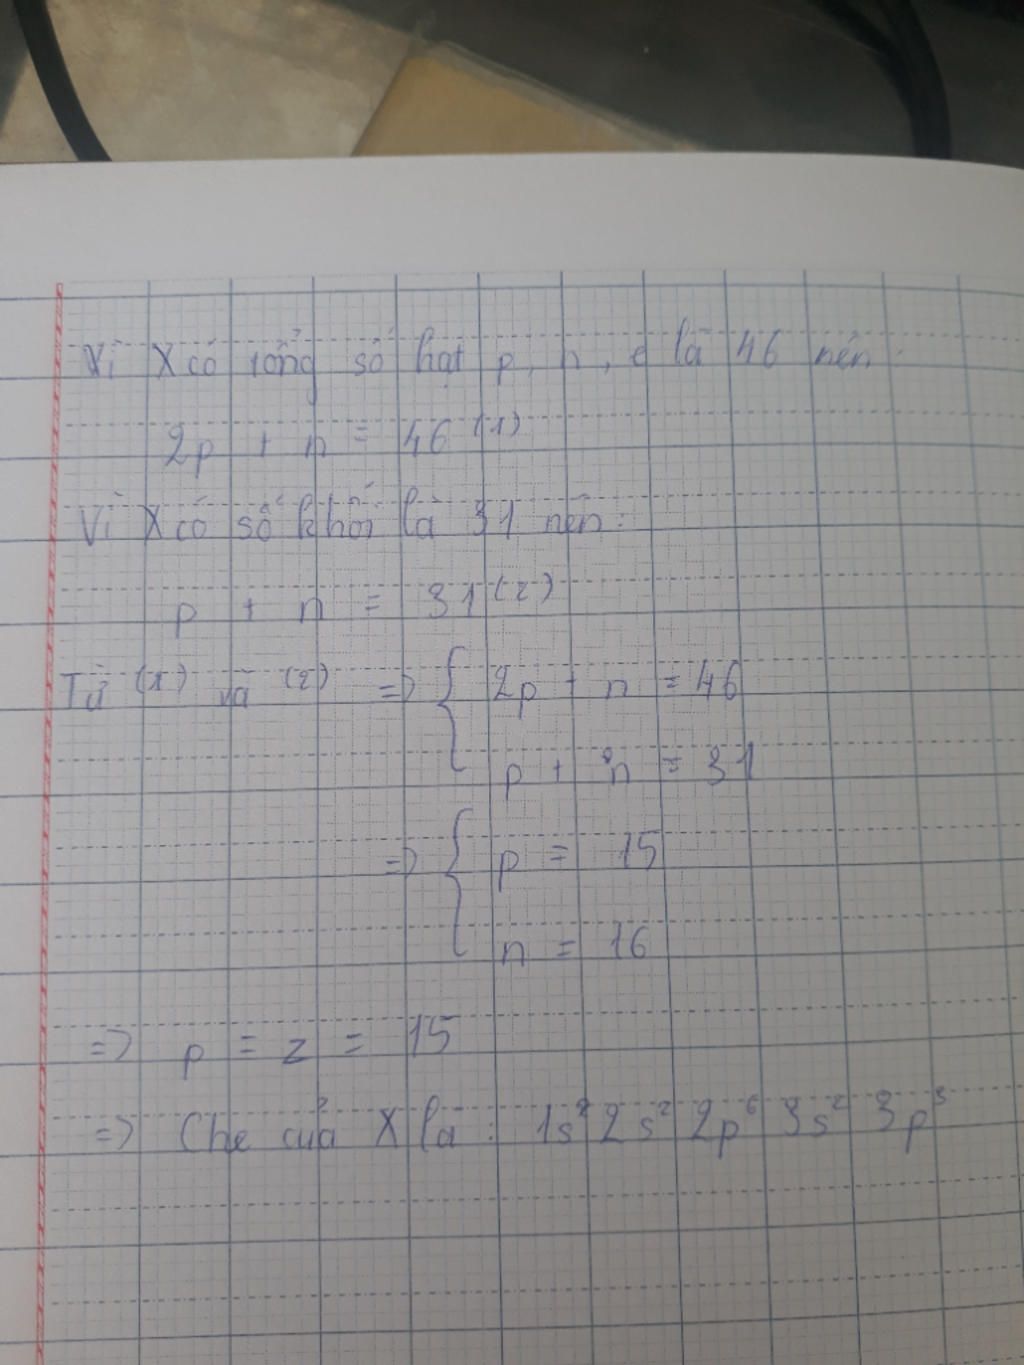 Vì X có tổng số hạt p, n, e là 46 nên:
2p + n = 46 (1)
Vì X có số khối là 31 nên:
p + n = 31 (2)
Từ (1) và (2) => { 2p + n = 46
p + n = 31
=> { p = 15
n = 16
=> p = z = 15
=> Che của X là: 1s² 2s² 2p⁶ 3s² 3p³